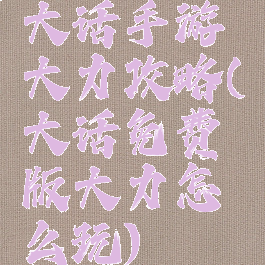 大话手游
大力攻略(
大话免费
版大力怎
么玩)